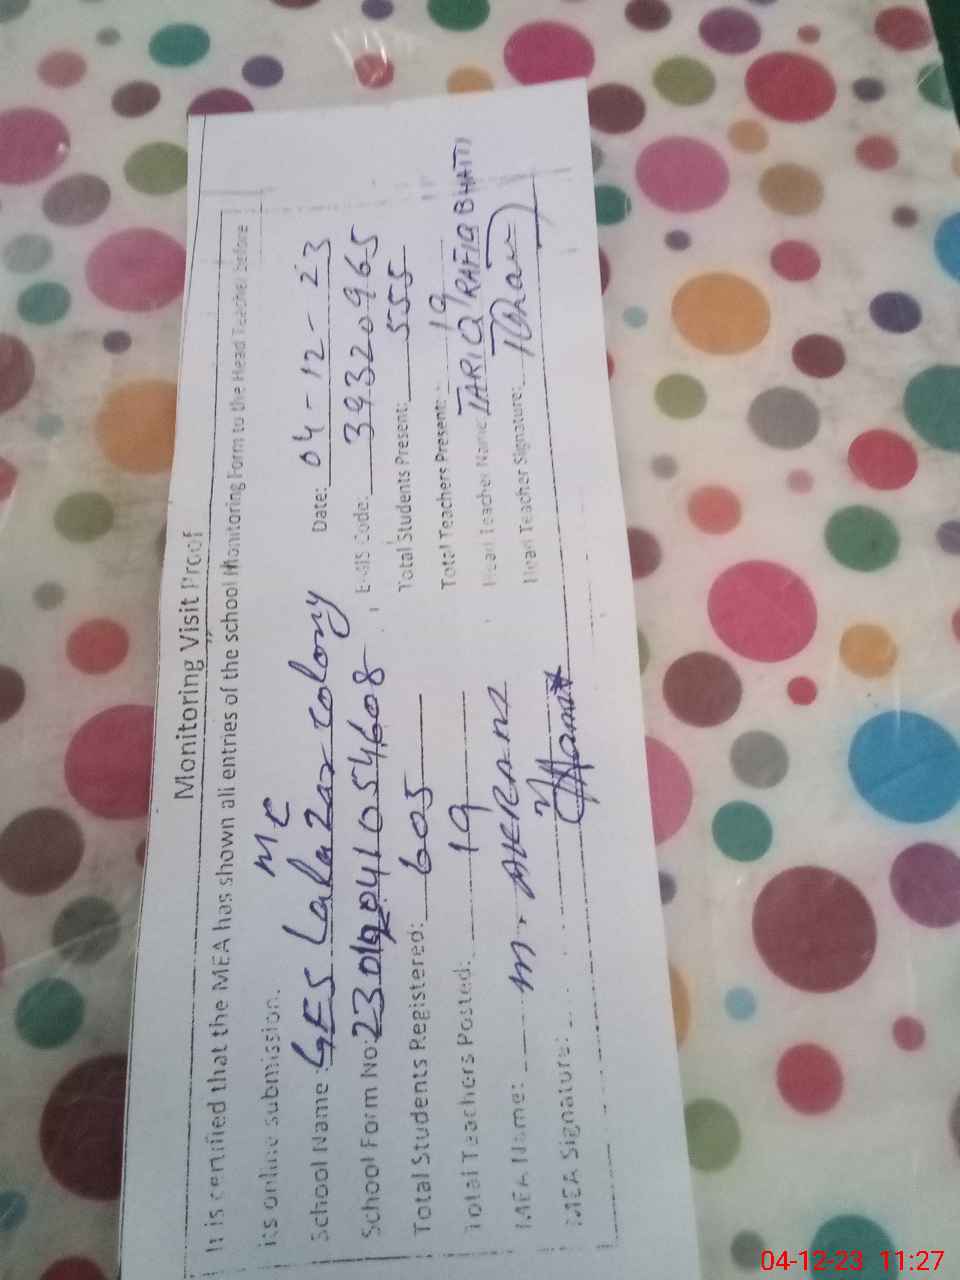 Monitoring Visit Proof
It is certified that the MEA has shown all entries of the school Monitoring Form to the Head Teacher before
its online submission.
MC
School Name: GES Lalazar colony Date: 04-12-23
School Form No: 054608 EMIS Code: 39320965
Total Students Registered: 605 Total Students Present: 555
Total Teachers Posted: 19 Total Teachers Present: 19
MEA Name: Head Teacher Name: TARIQ RAFIQ BHATTI
MEA Signature: Head Teacher Signature:
04-12-23 11:27